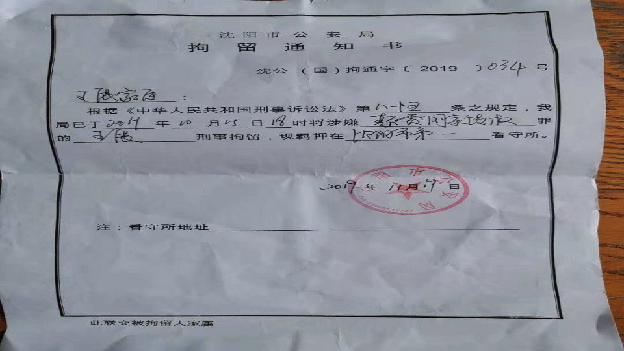 沈阳市公安局
拘留通知书
沈公（国）拘通字〔2019〕034号
家属：
根据《中华人民共和国刑事诉讼法》第八十 条之规定，我
局已于2019年10月15日18时将涉嫌 罪
的 刑事拘留，现羁押在 第一看守所。
2019年 月 日
注：看守所地址
此联交被拘留人家属